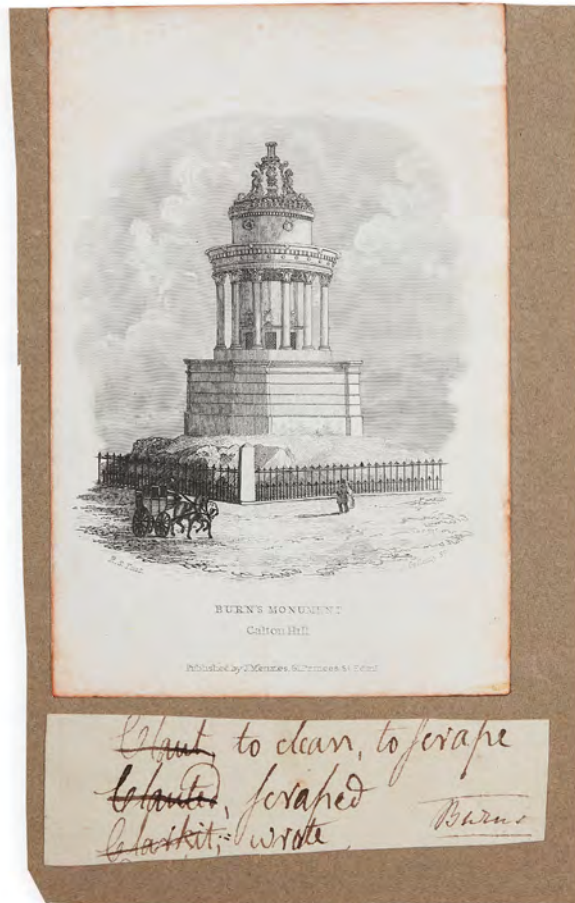 R. S. Tait
BURN'S MONUMENT
Calton Hill
Published by J. Menzies, 61, Princes St. Edinr.
Claut, to clean, to scrape
Clauted, scraped
Clarkit, wrote
Burns